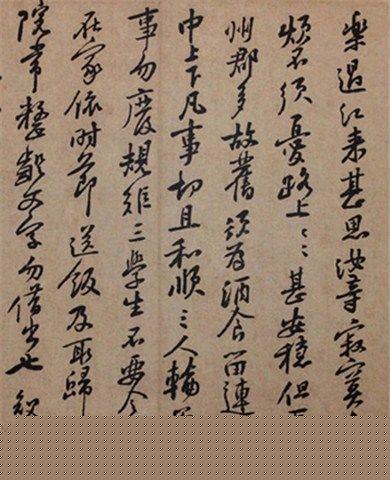 樂過江來甚思汝等寂寞
煩不須憂路上〻甚安穩但
州郡多故舊須為酒食留連
中上下凡事切且和順三人輪
事勿廢規矩三學生不要令
在家依時節送飯及取歸
院常整齪文字勿借出也知